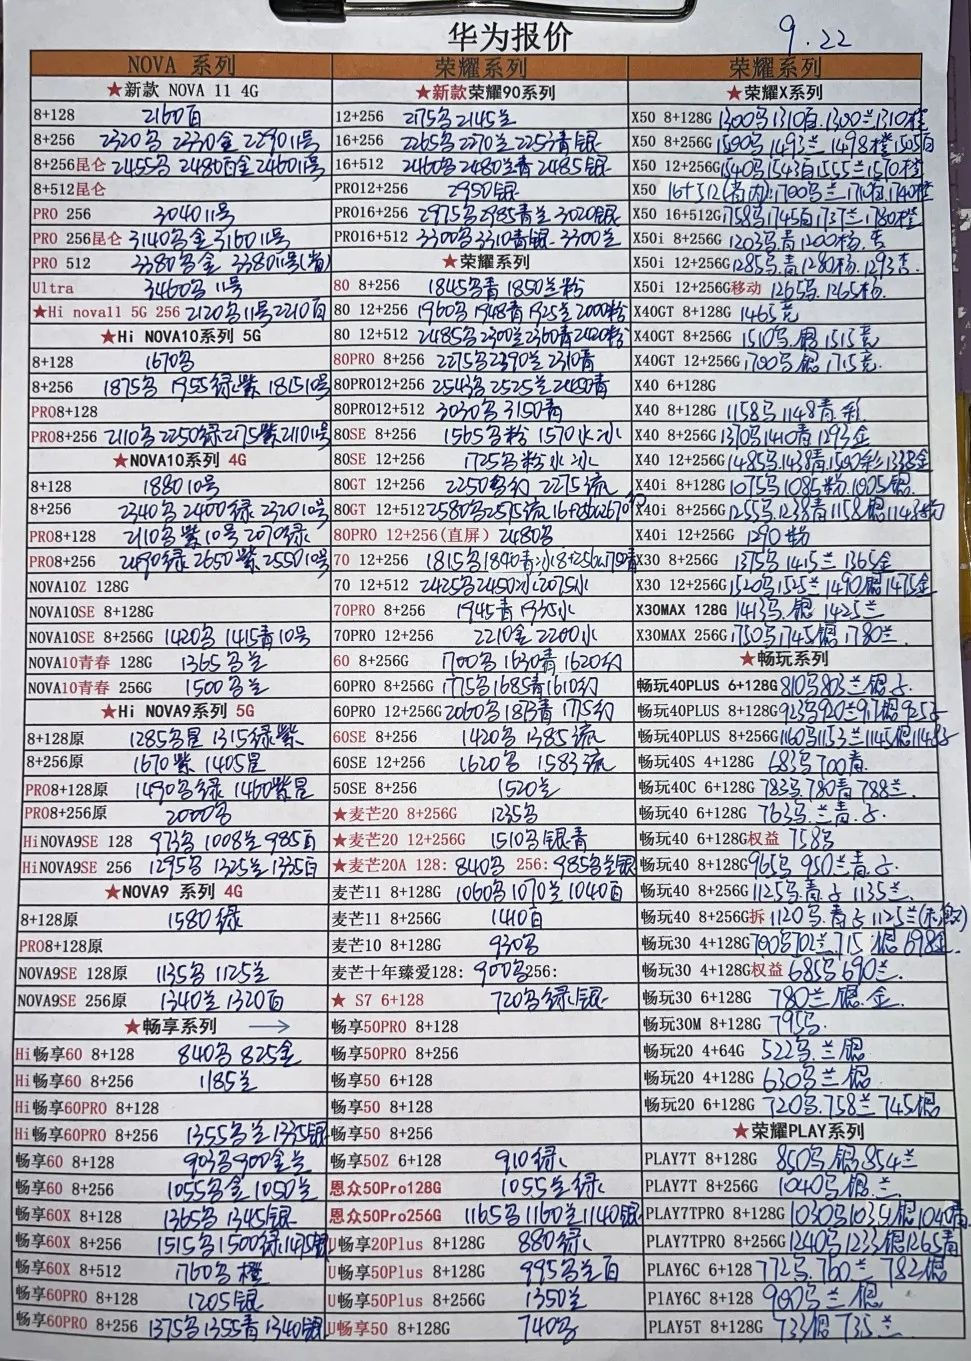 华为报价
9.22
NOVA 系列
★新款 NOVA 11 4G
8+128 2160百
8+256 2320多 2330金 2290 11号
8+256昆仑 2455多 2480百金 2460 11号
8+512昆仑
PRO 256 3040 11号
PRO 256昆仑 3140多金 3160 11号
PRO 512 3380多金 3380 11号(省)
Ultra 3460多 11号
★Hi nova11 5G 256 2120多 11号 2210百
★Hi NOVA10系列 5G
8+128 1670多
8+256 1875多 1955绿紫 1815 10号
PRO8+128
PRO8+256 2110多 2250绿 2175紫 2110 11号
★NOVA10系列 4G
8+128 1880 10号
8+256 2340多 2400绿 2320 10号
PRO8+128 2110多紫 10号 2070绿
PRO8+256 2490绿 2650紫 2550 10号
NOVA10Z 128G
NOVA10SE 8+128G
NOVA10SE 8+256G 1420多 1415青 10号
NOVA10青春 128G 1365多兰
NOVA10青春 256G 1500多兰
★Hi NOVA9系列 5G
8+128原 1285多星 1315绿紫
8+256原 1670紫 1405星
PRO8+128原 1490多绿 1460紫星
PRO8+256原 2000多
HiNOVA9SE 128 973多 1008兰 985百
HiNOVA9SE 256 1295多 1325兰 1335百
★NOVA9 系列 4G
8+128原 1580绿
PRO8+128原
NOVA9SE 128原 1135多 1125兰
NOVA9SE 256原 1340兰 1320百
★畅享系列 →
Hi畅享60 8+128 840多 825金
Hi畅享60 8+256 1185兰
Hi畅享60PRO 8+128
Hi畅享60PRO 8+256 1355多兰 1335银
畅享60 8+128 903多 900金兰
畅享60 8+256 1055多金 1050兰
畅享60X 8+128 1365多 1345银
畅享60X 8+256 1515多 1500绿 1475银
畅享60X 8+512 1760多橙
畅享60PRO 8+128 1205银
畅享60PRO 8+256 1375多 1355青 1340银
荣耀系列
★新款荣耀90系列
12+256 2175多 2145兰
16+256 2265多 2270兰 2253青银
16+512 2460多 2480兰青 2485银
PRO12+256 2950银
PRO16+256 2975多 2985青兰 3020银
PRO16+512 3300多 3310青银 3300兰
★荣耀系列
80 8+256 1845多青 1850兰粉
80 12+256 1960多 1948青 1925兰 2000粉
80 12+512 2485多 2300兰 2360青 2420粉
80PRO 8+256 2275多 2390兰 2310青
80PRO12+256 2543多 2525兰 2450青
80PRO12+512 3030多 3150青
80SE 8+256 1565多粉 1570水冰
80SE 12+256 1725多粉水冰
80GT 12+256 2250多幻 2275流
80GT 12+512 2580多 2575流
80PRO 12+256(直屏) 2480多
70 12+256 1815多 1840青冰 8+256
70 12+512 2425多 2450冰 2075水
70PRO 8+256 1945青 1935水
70PRO 12+256 2210金 2200水
60 8+256G 1700多 1630青 1620幻
60PRO 8+256G 1775多 1685青 1610幻
60PRO 12+256G 2060多 1873青 1775幻
60SE 8+256 1420多 1385流
60SE 12+256 1620多 1583流
50SE 8+256 1520兰
★麦芒20 8+256G 1235多
★麦芒20 12+256G 1510多银青
★麦芒20A 128: 840多 256: 985多兰银
麦芒11 8+128G 1060多 1070兰 1040百
麦芒11 8+256G 1410百
麦芒10 8+128G 930多
麦芒十年臻爱128: 900多 256:
★ S7 6+128 720多绿银
畅享50PRO 8+128
畅享50PRO 8+256
畅享50 6+128
畅享50 8+128
畅享50 8+256
畅享50Z 6+128 910绿
恩众50Pro128G 1055兰绿
恩众50Pro256G 1165多 1160兰 1140银
U畅享20Plus 8+128G 880绿
U畅享50Plus 8+128G 995多兰百
U畅享50Plus 8+256G 1350兰
U畅享50 8+128G 740多
荣耀系列
★荣耀X系列
X50 8+128G 1300多 1310百 1300兰 1310橙
X50 8+256G 1500多 1493兰 1498橙 1505百
X50 12+256G 1540多 1543百 1555兰 1570橙
X50 16+512(省内):1700多兰 1710百 1740橙
X50 16+512G 1758多 1745百 1737兰 1780橙
X50i 8+256G 1203多青 1200粉杏
X50i 12+256G 1285多青 1280粉 1293杏
X50i 12+256G移动 1265多 1265粉
X40GT 8+128G 1465竞
X40GT 8+256G 1510多银 1515竞
X40GT 12+256G 1700多银 1715竞
X40 6+128G
X40 8+128G 1158多 1148青彩
X40 8+256G 1370多 1410青 1293金
X40 12+256G 1485多 1438青 1500彩 1338金
X40i 8+128G 1075多 1085粉 1005银
X40i 8+256G 1255多 1238青 1158银 1148粉
X40i 12+256G 1290粉
X30 8+256G 1375多 1415兰 1365金
X30 12+256G 1520多 1525兰 1490银 1475金
X30MAX 128G 1413多银 1425兰
X30MAX 256G 1750多 1745银 1780兰
★畅玩系列
畅玩40PLUS 6+128G 810多 803兰银子
畅玩40PLUS 8+128G 923多 920兰 917银 925子
畅玩40PLUS 8+256G 1160多 1153兰 1145银 1148子
畅玩40S 4+128G 683多 700青
畅玩40C 6+128G 783多 780青 788兰
畅玩40 6+128G 763多兰青子
畅玩40 6+128G权益 758多
畅玩40 8+128G 965多 950兰青子
畅玩40 8+256G 1125多青子 1135兰
畅玩40 8+256G拆 1120多青子 1125兰
畅玩30 4+128G 700多 702兰 715银 698金
畅玩30 4+128G权益 685多 690兰
畅玩30 6+128G 780兰银金
畅玩30M 8+128G 795多
畅玩20 4+64G 522多兰银
畅玩20 4+128G 630多兰银
畅玩20 6+128G 720多 758兰 745银
★荣耀PLAY系列
PLAY7T 8+128G 850多银 854兰
PLAY7T 8+256G 1040多银兰
PLAY7TPRO 8+128G 1030多 1035银 1040青
PLAY7TPRO 8+256G 1240多 1233银 1265青
PLAY6C 6+128 772多 760兰 782银
PlAY6C 8+128 900多兰银
PLAY5T 8+128G 733银 735兰